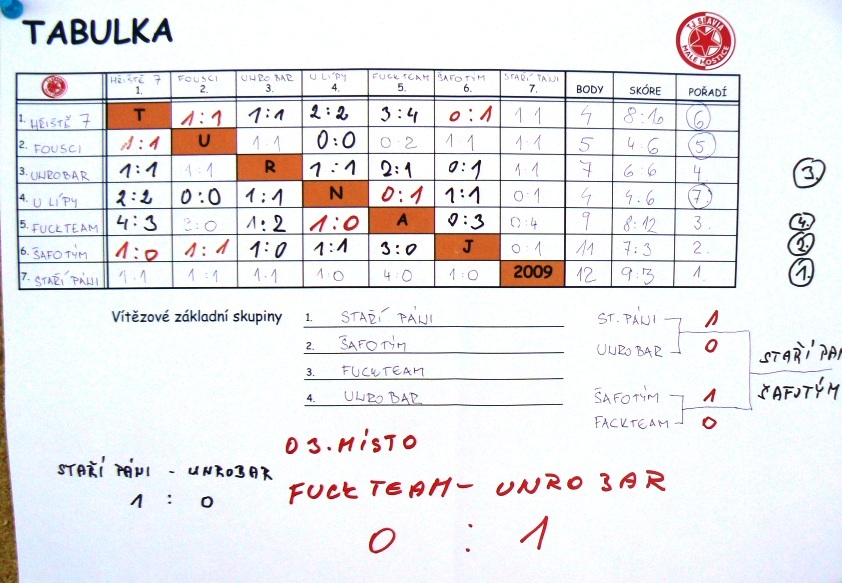 TABULKA
TJ SLAVIA MALÉ HOŠTICE
HŘIŠTĚ 7 FOUSCI UNROBAR U LÍPY FUCKTEAM ŠAFOTÝM STAŘÍ PÁNI
1. 2. 3. 4. 5. 6. 7. BODY SKÓRE POŘADÍ
1. HŘIŠTĚ 7 T 1:1 1:1 2:2 3:4 0:1 1:1 4 8:10 6
2. FOUSCI 1:1 U 1:1 0:0 0:2 1:1 1:1 5 4:6 5
3. UNROBAR 1:1 1:1 R 1:1 2:1 0:1 1:1 7 6:6 4. 3.
4. U LÍPY 2:2 0:0 1:1 N 0:1 1:1 0:1 4 4:6 7.
5. FUCKTEAM 4:3 2:0 1:2 1:0 A 0:3 0:4 9 8:12 3. 4.
6. ŠAFOTÝM 1:0 1:1 1:0 1:1 3:0 J 0:1 11 7:3 2. 2.
7. STAŘÍ PÁNI 1:1 1:1 1:1 1:0 4:0 1:0 2009 12 9:3 1. 1.
Vítězové základní skupiny
1. STAŘÍ PÁNI
2. ŠAFOTÝM
3. FUCKTEAM
4. UNROBAR
ST. PÁNI 1
UNROBAR 0
STAŘÍ PÁ
ŠAFOTÝM
ŠAFOTÝM 1
FACKTEAM 0
O 3. MÍSTO
STAŘÍ PÁNI - UNROBAR
1 : 0
FUCKTEAM - UNROBAR
0 : 1